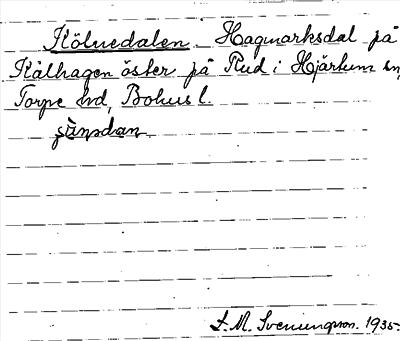 Kölnedalen. Hagmarksdal på
Kålhagen öster på Rud i Hjärtum sn,
Torpe hd, Bohus l.
S. M. Svenungsson. 1935.